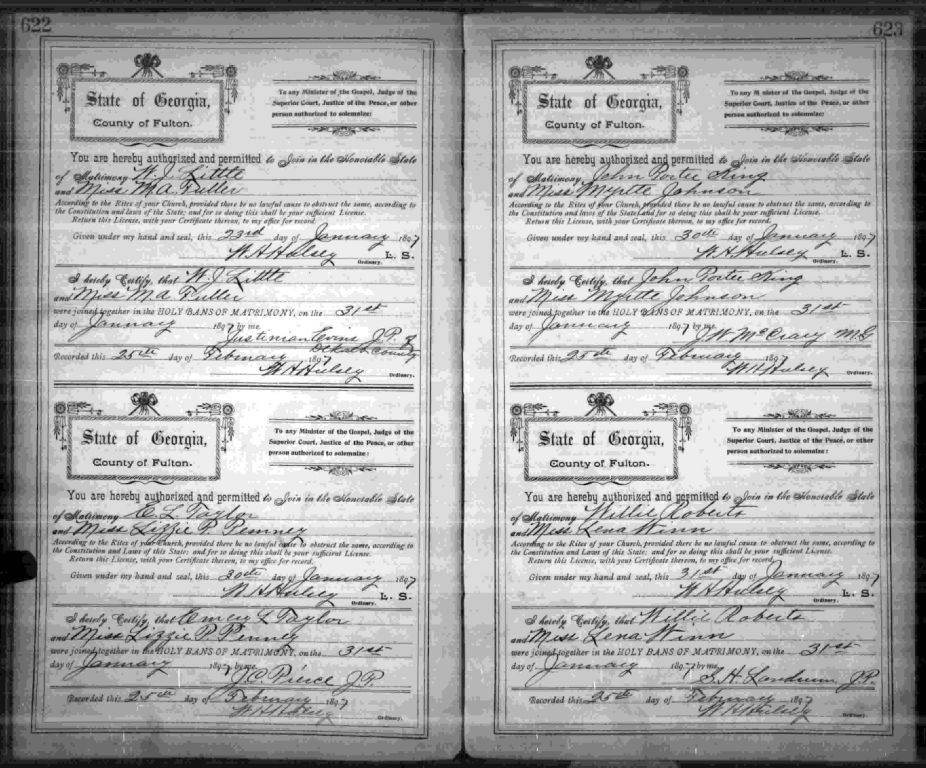 622
State of Georgia,
County of Fulton.
To any Minister of the Gospel, Judge of the
Superior Court, Justice of the Peace, or other
person authorized to solemnize:
You are hereby authorized and permitted to Join in the Honorable State
of Matrimony W. J. Little
and Miss M A Fuller
According to the Rites of your Church, provided there be no lawful cause to obstruct the same, according to
the Constitution and laws of the State; and for so doing this shall be your sufficient License.
Return this License, with your Certificate thereon, to my office for record.
Given under my hand and seal, this 23rd day of January 1897
W. H. Hulsey L. S.
Ordinary.
I hereby Certify, that W. J. Little
and Miss M A Fuller
were joined together in the HOLY BANS OF MATRIMONY, on the 31st
day of January 1897 by me.
Evins J. P.
Dekalb County
Recorded this 25th day of February 1897
W H Hulsey Ordinary.
State of Georgia,
County of Fulton.
To any Minister of the Gospel, Judge of the
Superior Court, Justice of the Peace, or other
person authorized to solemnize:
You are hereby authorized and permitted to Join in the Honorable State
of Matrimony E L Taylor
and Miss Lizzie P. Penney
According to the Rites of your Church, provided there be no lawful cause to obstruct the same, according to the
Constitution and Laws of this State; and for so doing this shall be your sufficient License.
Return this License, with your Certificate thereon, to my office for record.
Given under my hand and seal, this 30th day of January 1897
W. H. Hulsey L. S.
Ordinary.
I hereby Certify, that L Taylor
and Miss Lizzie P. Penney
were joined together in the HOLY BANS OF MATRIMONY, on the 31st
day of January 1897 by me.
J C Pierce J P.
Recorded this 25th day of February 1897
W H Hulsey Ordinary.
623
State of Georgia,
County of Fulton.
To any Minister of the Gospel, Judge of the
Superior Court, Justice of the Peace, or other
person authorized to solemnize:
You are hereby authorized and permitted to Join in the Honorable State
of Matrimony John Porter King
and Miss Myrtte Johnson
According to the Rites of your Church, provided there be no lawful cause to obstruct the same, according to the
Constitution and laws of this State, and for so doing this shall be your sufficient License.
Return this License, with your Certificate thereon, to my office for record.
Given under my hand and seal, this 30th day of January 1897
W. H. Hulsey L. S.
Ordinary.
I hereby Certify, that John Porter King
and Miss Myrtte Johnson
were joined together in the HOLY BANS OF MATRIMONY, on the 31st
day of January 1897 by me.
J W McCrary M G
Recorded this 25th day of February 1897
W. H. Hulsey Ordinary.
State of Georgia,
County of Fulton.
To any Minister of the Gospel, Judge of the
Superior Court, Justice of the Peace, or other
person authorized to solemnize:
You are hereby authorized and permitted to Join in the Honorable State
of Matrimony Willie Roberts
and Miss Lena Winn
According to the Rites of your Church, provided there be no lawful cause to obstruct the same, according to the
Constitution and Laws of this State; and for so doing this shall be your sufficient License.
Return this License, with your Certificate thereon, to my office for record.
Given under my hand and seal, this 31st day of January 1897
W. H. Hulsey L. S.
Ordinary.
I hereby Certify, that Willie Roberts
and Miss Lena Winn
were joined together in the HOLY BANS OF MATRIMONY, on the 31st
day of January 1897 by me
S. H. Landrum J. P.
Recorded this 25th day of February 1897
W H Hulsey Ordinary.